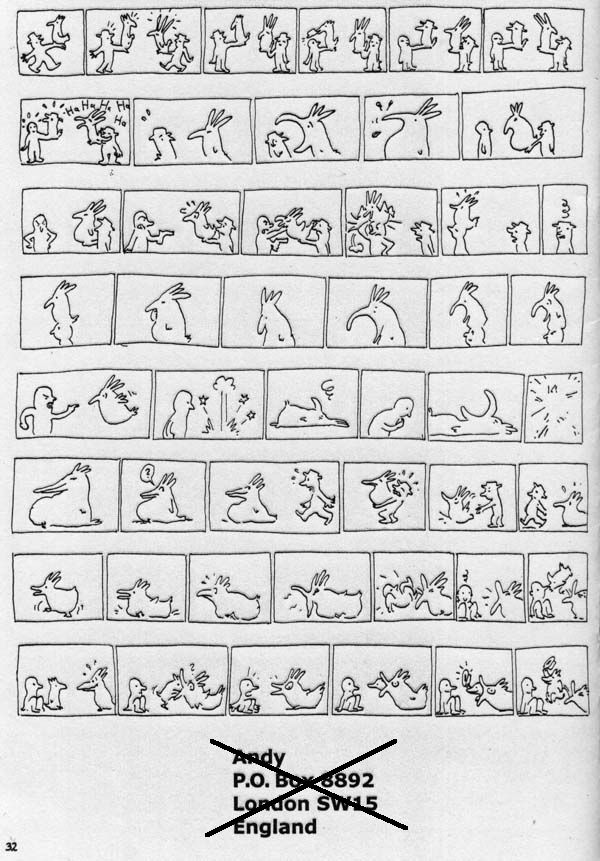 Ha Ha Ha Ha
Ha
?
Andy
P.O. Box 8892
London SW15
England
32